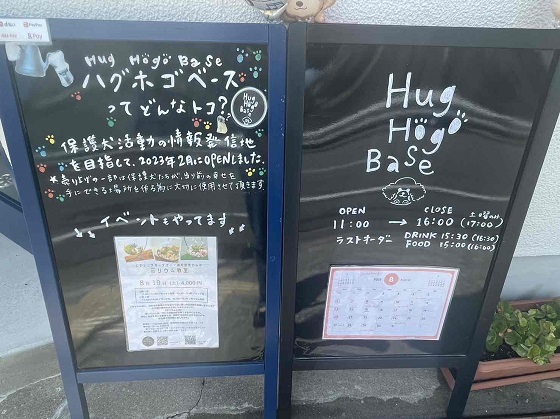 Hug Högö BaSe
ハグホゴベース
ってどんなトコ?
Hug
Högö
BaSe
保護犬活動の情報発信地
を目指して、2023年2月にOPENしました。
★売り上げの一部は保護犬たちが、当り前の幸せを
手にできる場所を作る為に大切に使用させて頂きます
イベントもやってます
Hug
Högö
BaSe
OPEN
11:00 → CLOSE 16:00 (17:00)
ラストオーダー DRINK 15:30 (16:30)
FOOD 15:00 (16:00)
8